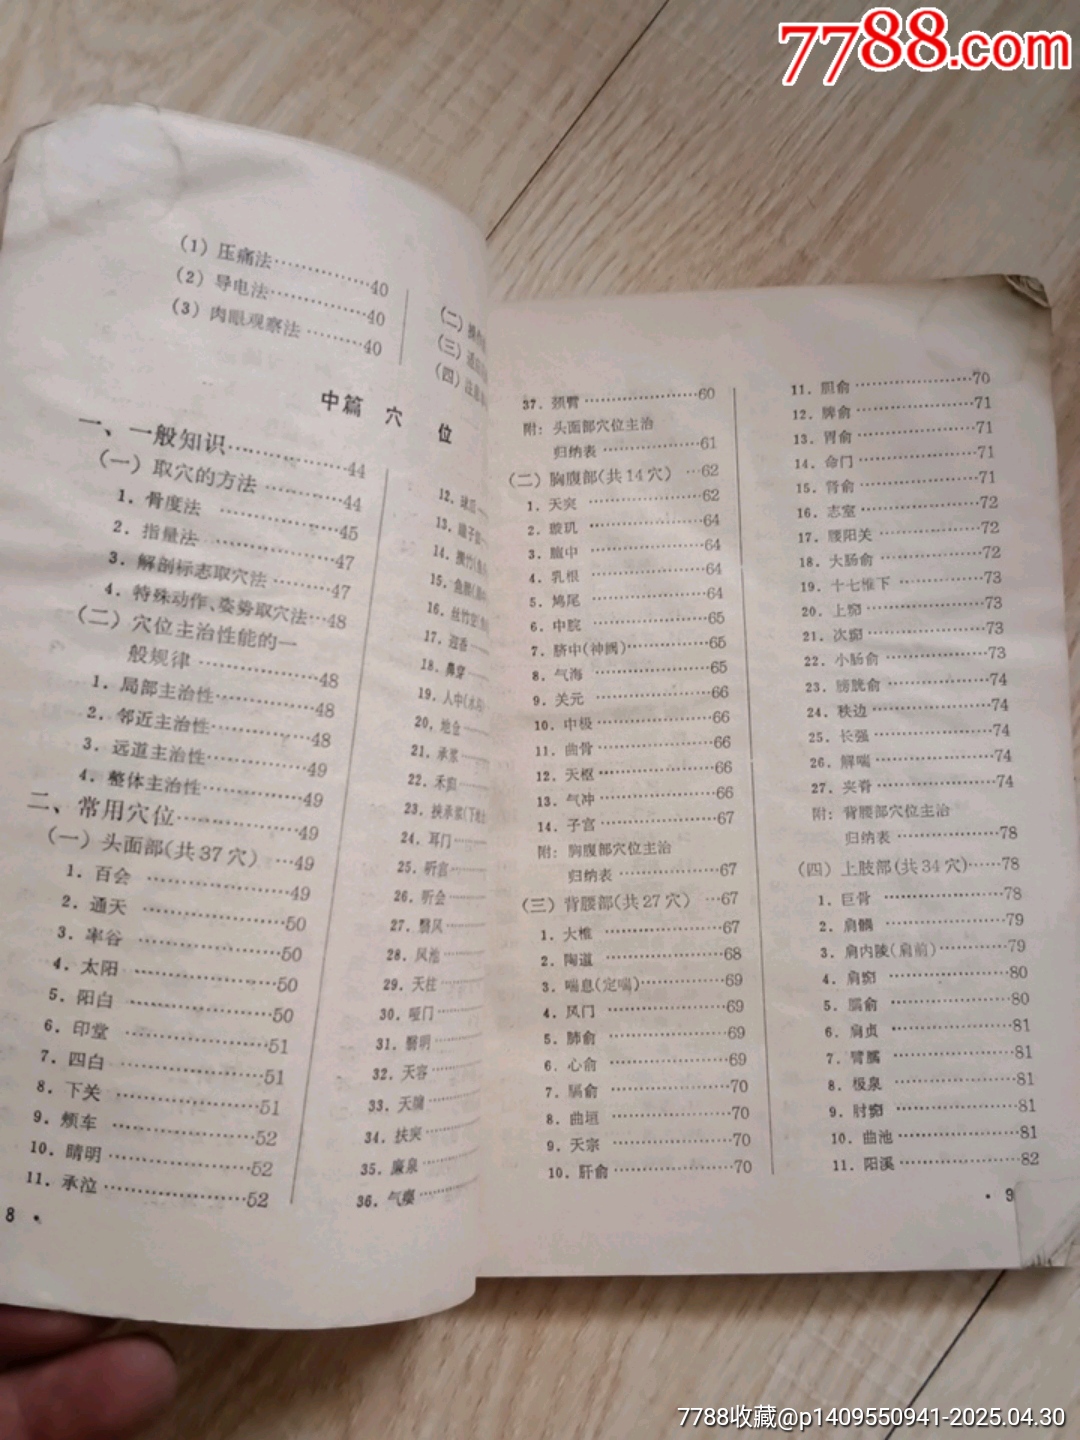 7788.com
(1) 压痛法……………40
(2) 导电法……………40
(3) 肉眼观察法………40
(二)
(三)
(四)
中篇 穴 位
一、一般知识……………44
(一) 取穴的方法…………44
1. 骨度法……………45
2. 指量法……………47
3. 解剖标志取穴法……47
4. 特殊动作、姿势取穴法…48
(二) 穴位主治性能的一
般规律……………48
1. 局部主治性…………48
2. 邻近主治性…………48
3. 远道主治性…………49
4. 整体主治性…………49
二、常用穴位……………49
(一) 头面部(共37穴)…49
1. 百会……………49
2. 通天……………50
3. 率谷……………50
4. 太阳……………50
5. 阳白……………50
6. 印堂……………51
7. 四白……………51
8. 下关……………51
9. 颊车……………52
10. 睛明……………52
11. 承泣……………52
12. 球
13.
14.
15. 鱼
16. 丝竹空
17. 迎香
18. 鼻穿
19. 人中(水
20. 地仓
21. 承浆
22. 禾窌
23. 挟承浆(下地
24. 耳门
25. 听宫
26. 听会
27. 翳风
28. 风池
29. 天柱
30. 哑门
31. 翳明
32. 天容
33. 天牖
34. 扶突
35. 廉泉
36. 气瘿
8 ·
37. 颈臂……………60
附: 头面部穴位主治
归纳表……………61
(二) 胸腹部(共14穴)…62
1. 天突……………62
2. 璇玑……………64
3. 膻中……………64
4. 乳根……………64
5. 鸠尾……………64
6. 中脘……………65
7. 脐中(神阙)…………65
8. 气海……………65
9. 关元……………66
10. 中极……………66
11. 曲骨……………66
12. 天枢……………66
13. 气冲……………66
14. 子宫……………67
附: 胸腹部穴位主治
归纳表……………67
(三) 背腰部(共27穴)…67
1. 大椎……………67
2. 陶道……………68
3. 喘息(定喘)…………69
4. 风门……………69
5. 肺俞……………69
6. 心俞……………69
7. 膈俞……………70
8. 曲垣……………70
9. 天宗……………70
10. 肝俞……………70
11. 胆俞……………70
12. 脾俞……………71
13. 胃俞……………71
14. 命门……………71
15. 肾俞……………71
16. 志室……………72
17. 腰阳关……………72
18. 大肠俞……………72
19. 十七椎下…………73
20. 上窌……………73
21. 次窌……………73
22. 小肠俞……………73
23. 膀胱俞……………74
24. 秩边……………74
25. 长强……………74
26. 解喘……………74
27. 夹脊……………74
附: 背腰部穴位主治
归纳表……………78
(四) 上肢部(共34穴)……78
1. 巨骨……………78
2. 肩髃……………79
3. 肩内陵(肩前)………79
4. 肩窌……………80
5. 臑俞……………80
6. 肩贞……………81
7. 臂臑……………81
8. 极泉……………81
9. 肘窌……………81
10. 曲池……………81
11. 阳溪……………82
· 9
7788收藏@p1409550941-2025.04.30